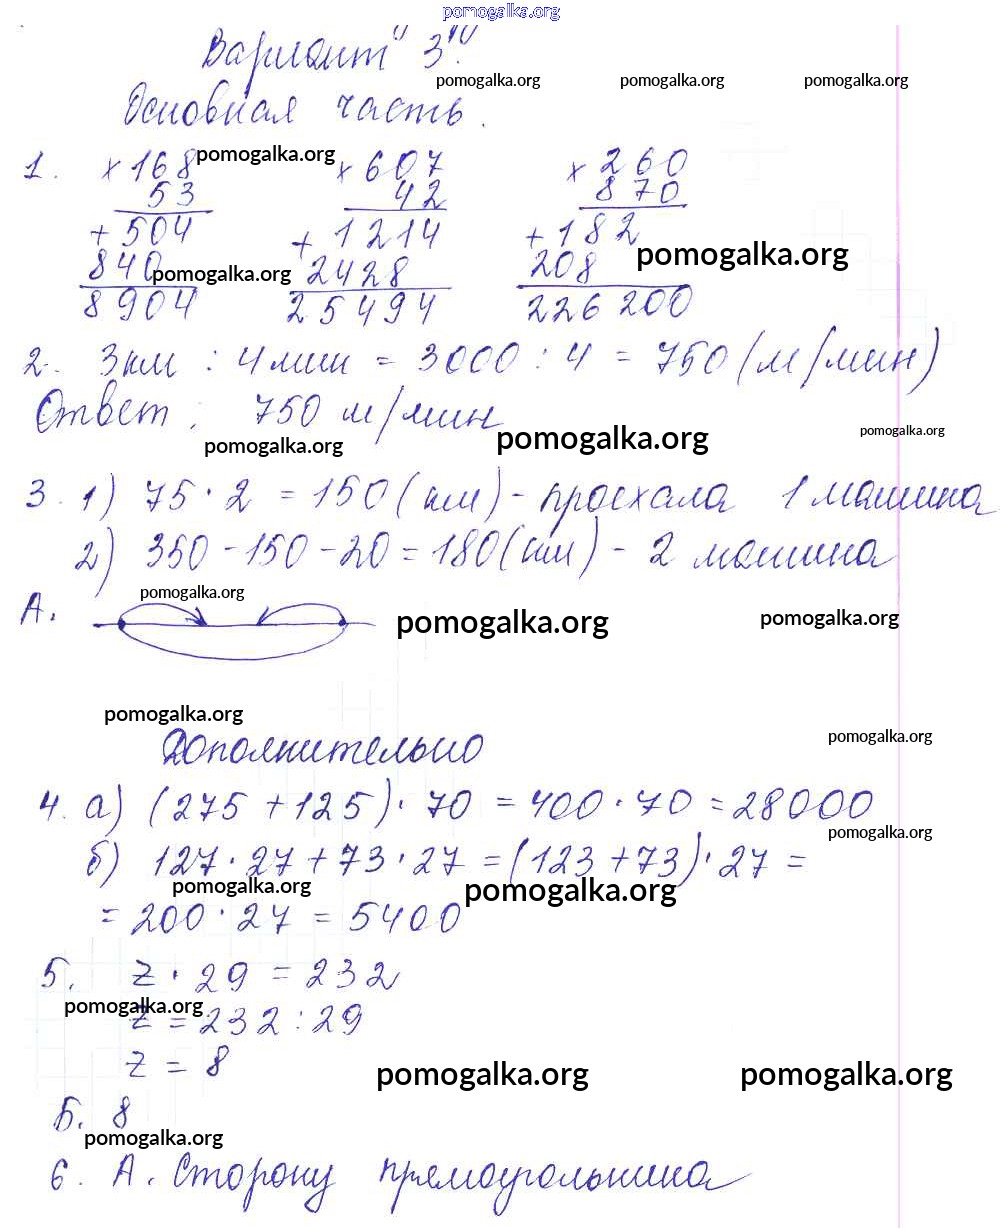 pomogalka.org
Вариант "3".
pomogalka.org pomogalka.org pomogalka.org
Основная часть.
1. × 168 pomogalka.org × 607 × 260
53 42 870
+ 504 + 1214 + 182
840 pomogalka.org 2428 208 pomogalka.org
8904 25494 226200
2. 3км : 4мин = 3000 : 4 = 750 (м/мин)
Ответ: 750 м/мин
pomogalka.org pomogalka.org pomogalka.org
3. 1) 75 · 2 = 150 (км) - проехала 1 машина
2) 350 - 150 - 20 = 180 (км) - 2 машина
А. pomogalka.org
pomogalka.org pomogalka.org
pomogalka.org
Дополнительно
pomogalka.org
4. а) (275 + 125) · 70 = 400 · 70 = 28000
pomogalka.org
б) 127 · 27 + 73 · 27 = (123 + 73) · 27 =
pomogalka.org pomogalka.org
= 200 · 27 = 5400
5. z · 29 = 232
pomogalka.org
z = 232 : 29
z = 8
pomogalka.org pomogalka.org
Б. 8
pomogalka.org
6. А. Сторону прямоугольника